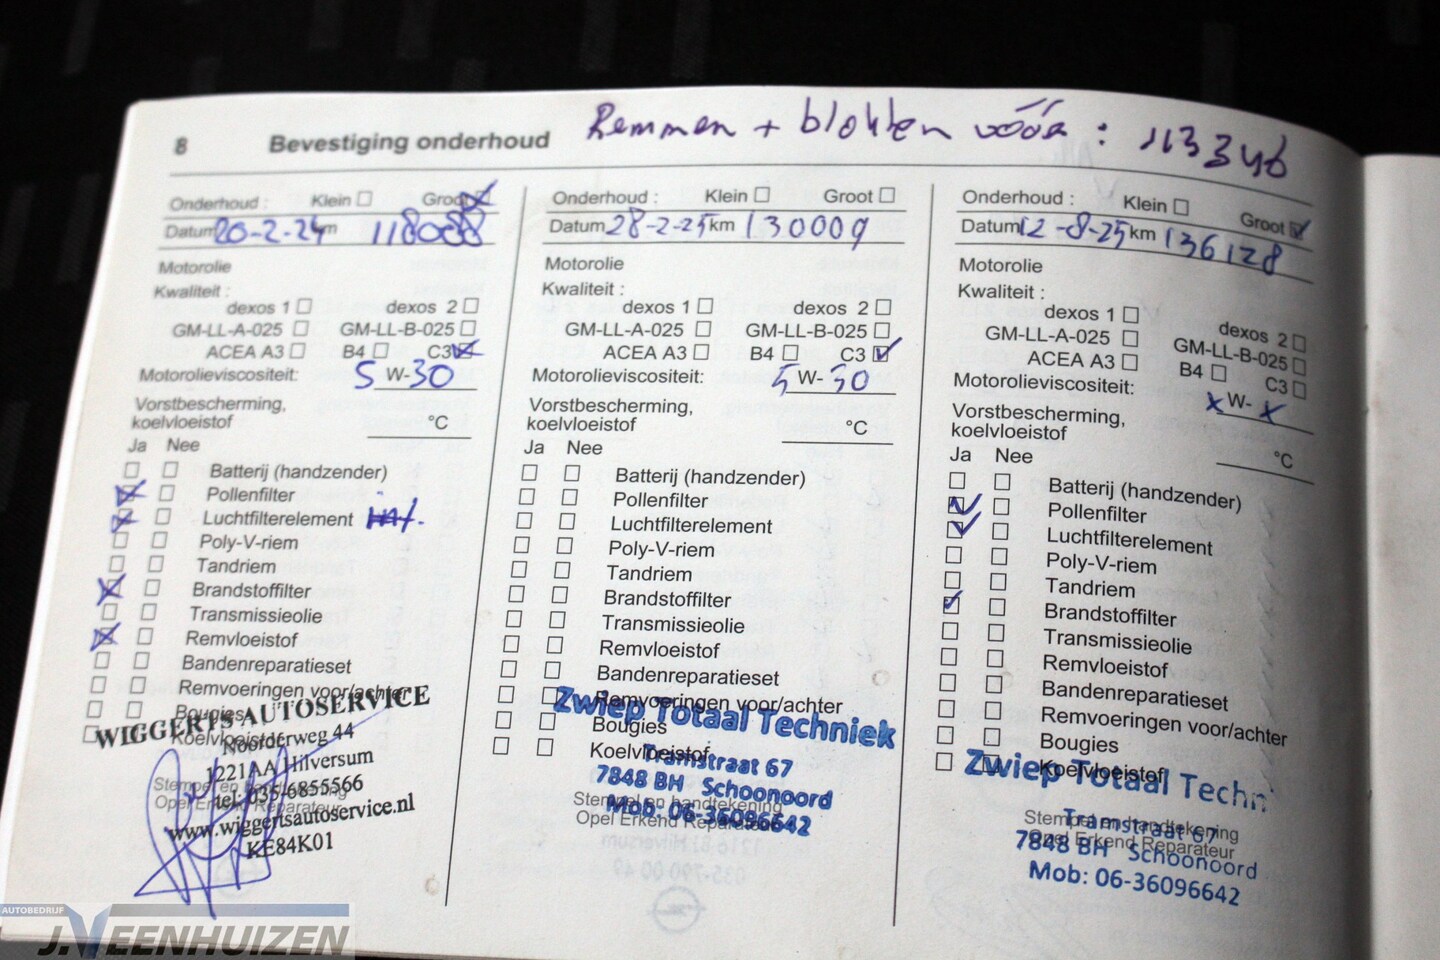 Remmen + blokken vóór : 113346
8 Bevestiging onderhoud
Onderhoud : Klein Groot
Datum 20-2-24 km 118088
Motorolie
Kwaliteit :
dexos 1 dexos 2
GM-LL-A-025 GM-LL-B-025
ACEA A3 B4 C3
Motorolieviscositeit: 5 W- 30
Vorstbescherming,
koelvloeistof °C
Ja Nee
Batterij (handzender)
Pollenfilter
Luchtfilterelement
Poly-V-riem
Tandriem
Brandstoffilter
Transmissieolie
Remvloeistof
Bandenreparatieset
Remvoeringen voor/achter
Bougies
Koelvloeistof
WIGGERTS AUTOSERVICE
Noorderweg 44
1221AA Hilversum
tel. 035-6855566
www.wiggertsautoservice.nl
KE84K01
Stempel en handtekening
Opel Erkend Reparateur
Onderhoud : Klein Groot
Datum 28-2-25 km 130009
Motorolie
Kwaliteit :
dexos 1 dexos 2
GM-LL-A-025 GM-LL-B-025
ACEA A3 B4 C3
Motorolieviscositeit: 5 W- 30
Vorstbescherming,
koelvloeistof °C
Ja Nee
Batterij (handzender)
Pollenfilter
Luchtfilterelement
Poly-V-riem
Tandriem
Brandstoffilter
Transmissieolie
Remvloeistof
Bandenreparatieset
Remvoeringen voor/achter
Bougies
Koelvloeistof
Zwiep Totaal Techniek
Tramstraat 67
7848 BH Schoonoord
Mob: 06-36096642
Stempel en handtekening
Opel Erkend Reparateur
Onderhoud : Klein Groot
Datum 12-8-25 km 136128
Motorolie
Kwaliteit :
dexos 1 dexos 2
GM-LL-A-025 GM-LL-B-025
ACEA A3 B4 C3
Motorolieviscositeit: x W- x
Vorstbescherming,
koelvloeistof °C
Ja Nee
Batterij (handzender)
Pollenfilter
Luchtfilterelement
Poly-V-riem
Tandriem
Brandstoffilter
Transmissieolie
Remvloeistof
Bandenreparatieset
Remvoeringen voor/achter
Bougies
Koelvloeistof
Zwiep Totaal Techn
Tramstraat 67
7848 BH Schoonoord
Mob: 06-36096642
Stempel en handtekening
Opel Erkend Reparateur
AUTOBEDRIJF
J. VEENHUIZEN